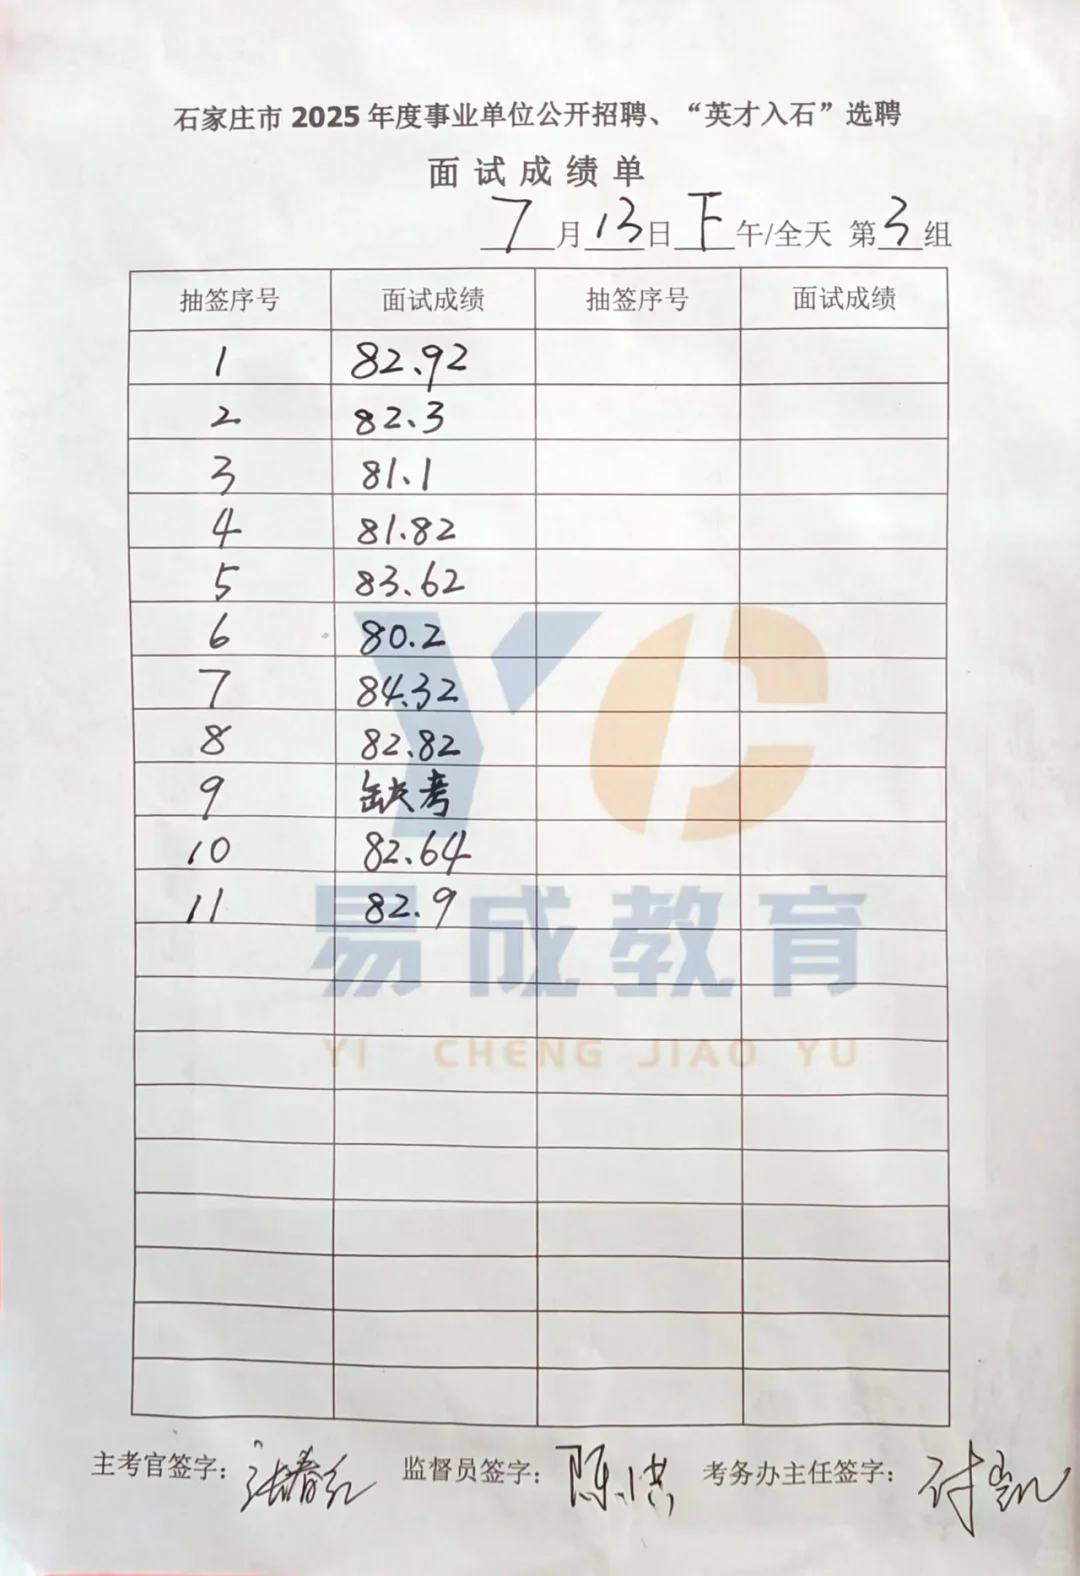 石家庄市 2025 年度事业单位公开招聘、“英才入石”选聘
面试成绩单
7月13日下午/全天 第3组
抽签序号 面试成绩 抽签序号 面试成绩
1 82.92
2 82.3
3 81.1
4 81.82
5 83.62
6 80.2
7 84.32
8 82.82
9 缺考
10 82.64
11 82.9
易成教育
YI CHENG JIAO YU
主考官签字： 监督员签字： 陈洪 考务办主任签字：